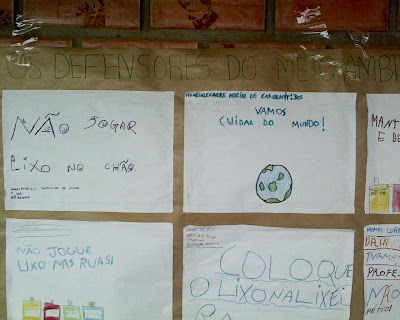 OS DEFENSORES DO MEIO AMBI
NÃO JOGAR
LIXO NO CHÃO.
VAMOS
CUIDAR DO MUNDO!
MANT
E BE
NÃO JOGUE
LIXO NAS RUAS!
COLOQUE
O LIXO NA LIXEI
RA
DATA:
TURMA
PROFES
NÃO
PÁTIO!